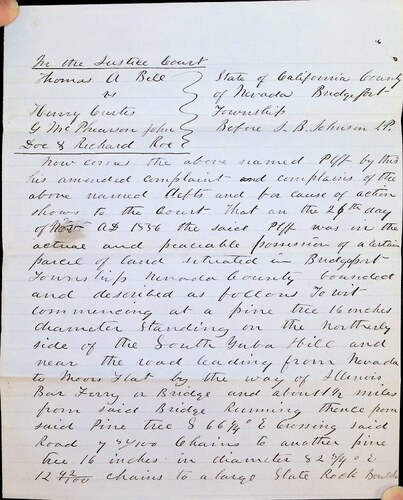 In the Justice Court
Thomas A Bell State of California County
vs of Nevada Bridgeport
Henry Curtis Township
G McPhearson John Before S. B. Johnson J.P.
Doe & Richard Roe
Now comes the above named Plff by this
his amended complaint and complains of the
above named defts and for cause of action
shows to the Court that on the 26th day
of AD 1856 the said Plff was in the
actual and peaciable possession of a certain
parcel of land situated in Bridgeport
Township Nevada County bounded
and described as follows To wit
commencing at a pine tree 16 inches
diameter standing on the northerly
side of the South Yuba Hill and
near the road leading from Nevada
to Moors Flat by the way of Illinois
Bar Ferry or Bridge and about 1½ miles
from said Bridge Running thence from
said Pine tree S 66¼° E Crossing said
Road 7 /100 Chains to another pine
tree 16 inches in diameter S 2 ° E
12 42/100 chains to a large Slate Rock